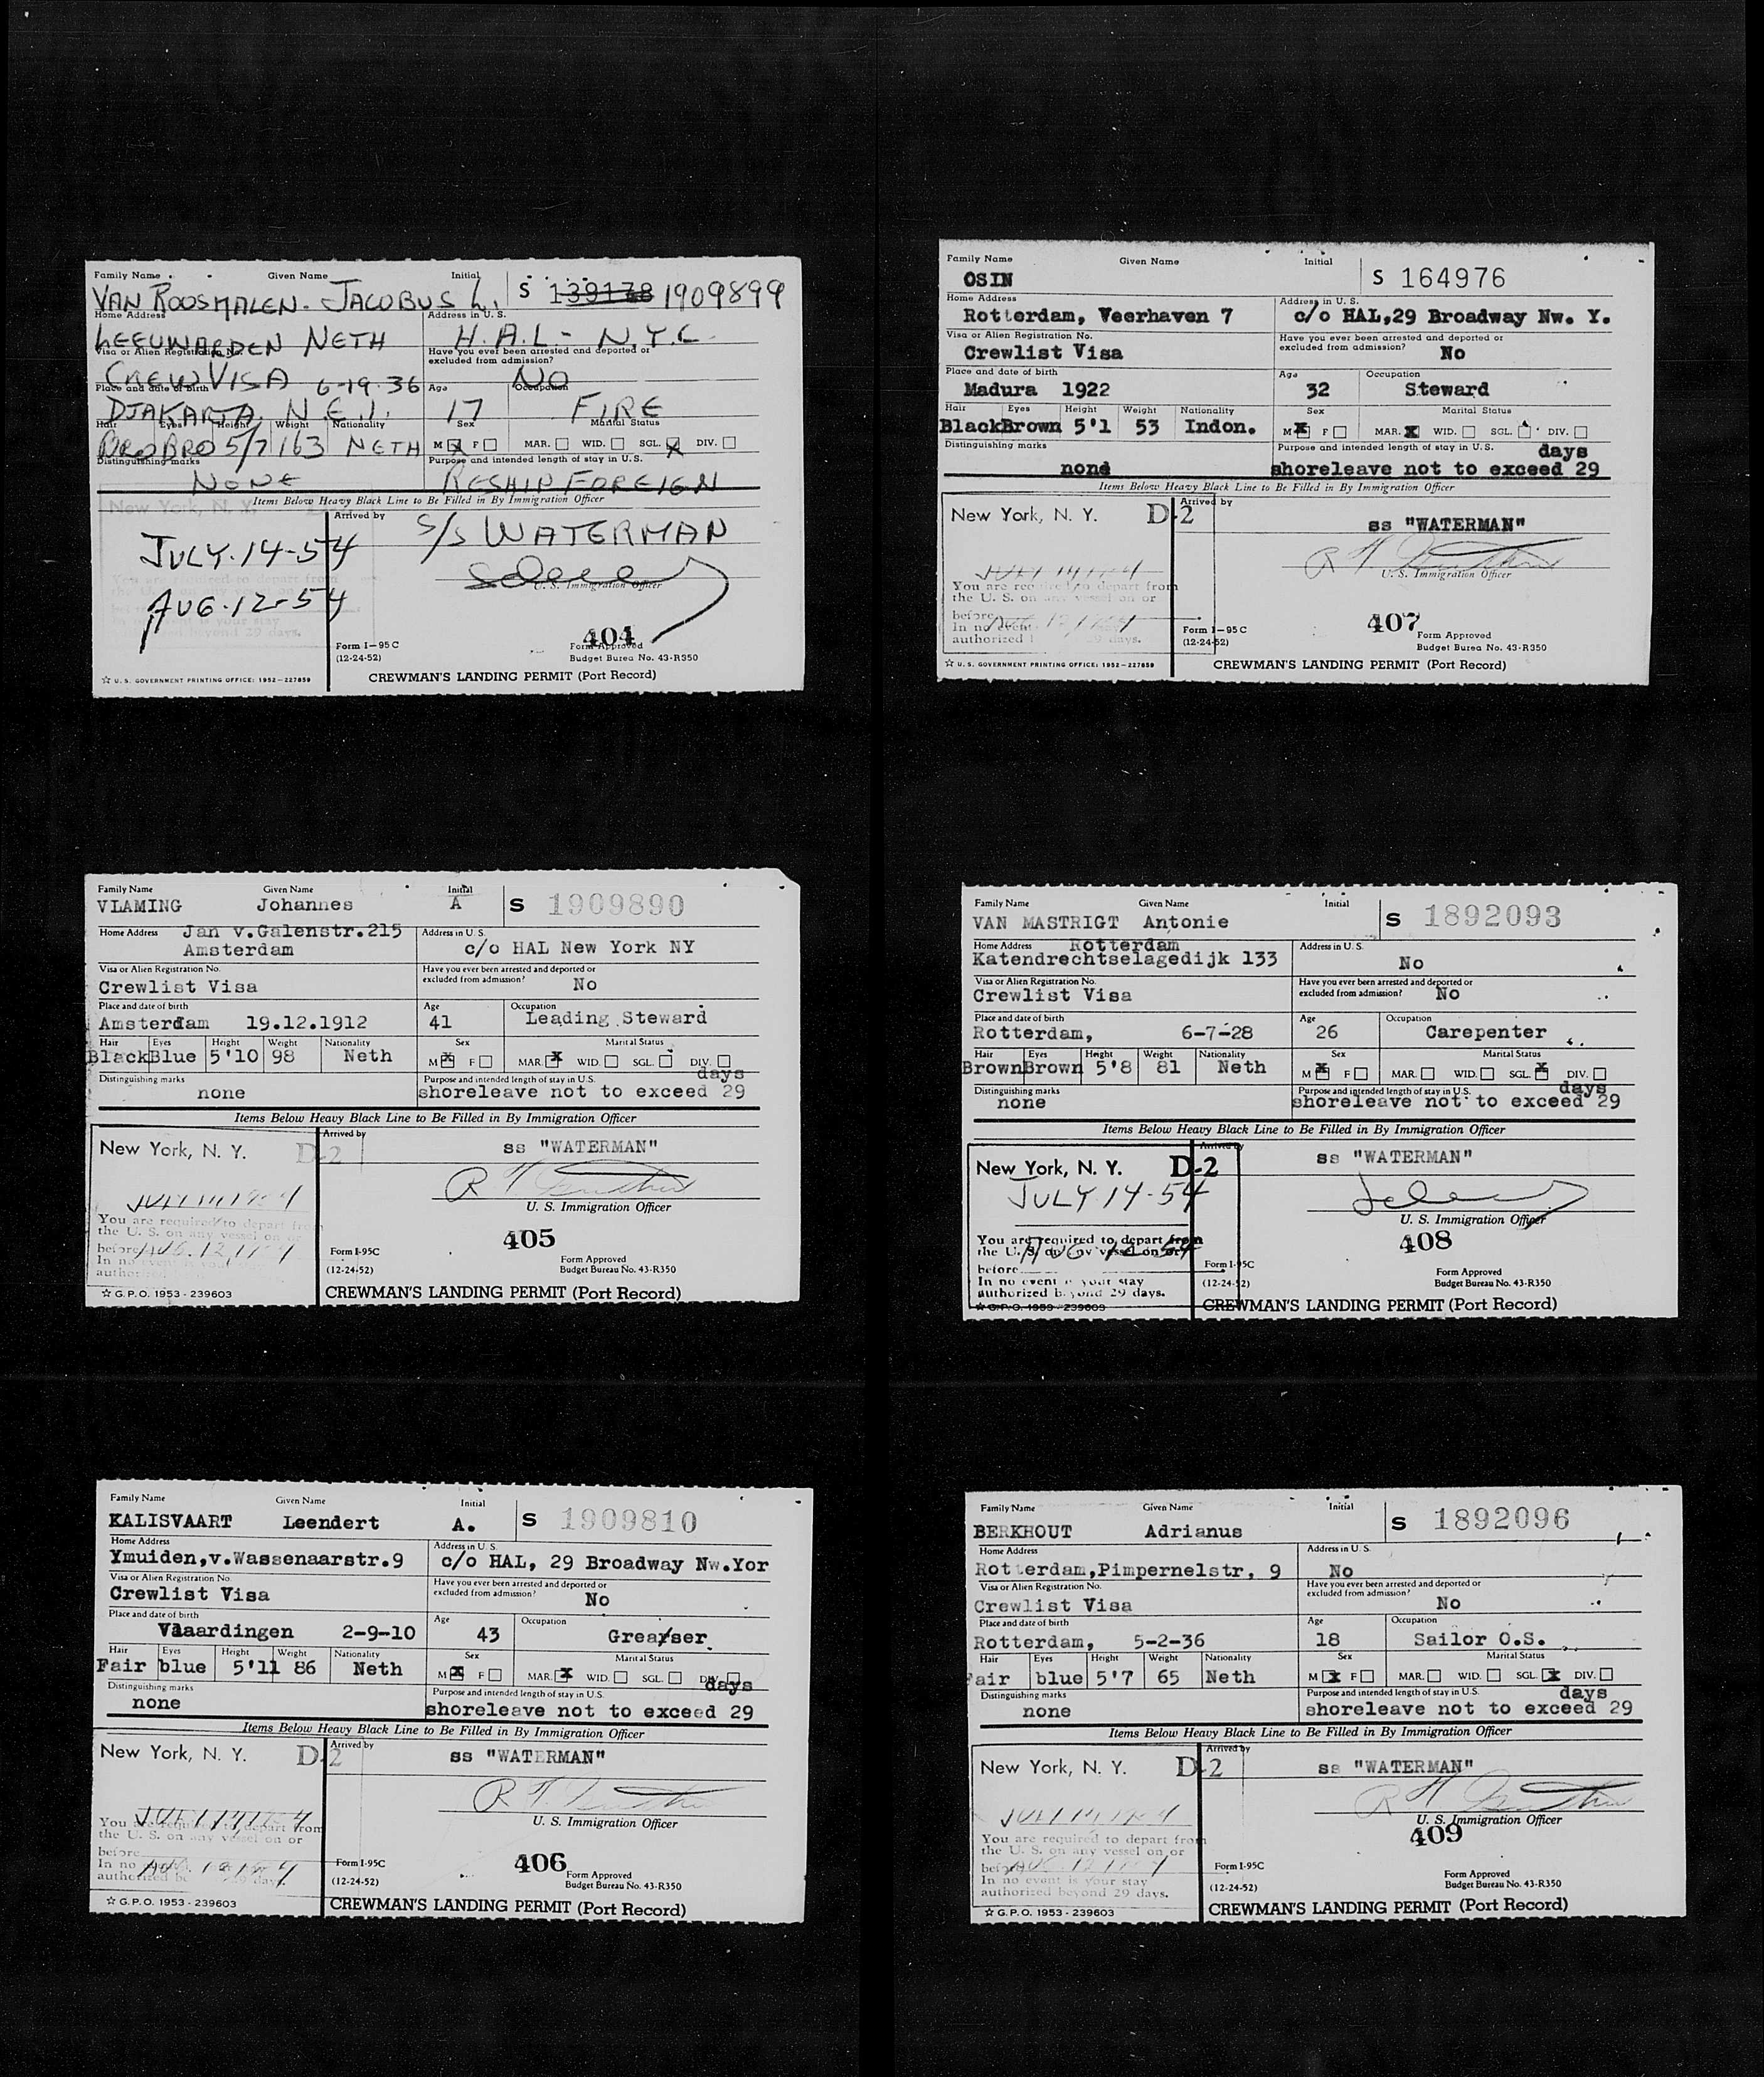 Family Name Given Name Initial
VAN ROOSMALEN. JACOBUS L. S 139178 1909899
Home Address Address in U. S.
LEEUWARDEN NETH H.A.L- N.Y.C.
Visa or Alien Registration No. Have you ever been arrested and deported or excluded from admission?
CREW VISA NO
Place and date of birth 6-19.36 Age Occupation
DJAKARTA. N.E.I. 17 FIRE
Hair Eyes Height Weight Nationality Sex Marital Status
BRO BRO 5/7 163 NETH M X F MAR. WID. SGL. X DIV.
Distinguishing marks Purpose and intended length of stay in U. S.
NONE RESHIP FOREIGN
Items Below Heavy Black Line to Be Filled in By Immigration Officer
New York, N. Y.
Arrived by S/S WATERMAN
JULY.14-54
U. S. Immigration Officer
AUG.12-54
404
Form I-95 C
(12-24-52)
Form Approved
Budget Burea No. 43-R350
☆ U. S. GOVERNMENT PRINTING OFFICE: 1952-227859
CREWMAN'S LANDING PERMIT (Port Record)
Family Name Given Name Initial
VLAMING Johannes A S 1909890
Home Address Jan v.Galenstr.215 Address in U. S.
Amsterdam c/o HAL New York NY
Visa or Alien Registration No. Have you ever been arrested and deported or excluded from admission?
Crewlist Visa No
Place and date of birth Age Occupation
Amsterdam 19.12.1912 41 Leading Steward
Hair Eyes Height Weight Nationality Sex Marital Status
Black Blue 5'10 98 Neth M X F MAR. X WID. SGL. DIV.
Distinguishing marks Purpose and intended length of stay in U.S. days
none shoreleave not to exceed 29
Items Below Heavy Black Line to Be Filled in By Immigration Officer
New York, N. Y. D-2 Arrived by ss "WATERMAN"
U. S. Immigration Officer
You are required to depart from
the U. S. on any vessel on or
before AUG. 12, 1954
In no
405
Form I-95C
(12-24-52)
Form Approved
Budget Bureau No. 43-R350
☆ G.P.O. 1953 - 239603
CREWMAN'S LANDING PERMIT (Port Record)
Family Name Given Name Initial
KALISVAART Leendert A. S 1909810
Home Address Address in U. S.
Ymuiden,v.Wassenaarstr.9 c/o HAL, 29 Broadway Nw.Yor
Visa or Alien Registration No. Have you ever been arrested and deported or excluded from admission?
Crewlist Visa No
Place and date of birth Age Occupation
Vlaardingen 2-9-10 43 Greaser
Hair Eyes Height Weight Nationality Sex Marital Status
Fair blue 5'11 86 Neth M X F MAR. X WID. SGL. DIV.
Distinguishing marks Purpose and intended length of stay in U.S. days
none shoreleave not to exceed 29
Items Below Heavy Black Line to Be Filled in By Immigration Officer
New York, N. Y. D-2 Arrived by ss "WATERMAN"
U. S. Immigration Officer
the U. S. on any vessel on or
before
In no
406
Form I-95C
(12-24-52)
Form Approved
Budget Bureau No. 43-R350
☆ G.P.O. 1953 - 239603
CREWMAN'S LANDING PERMIT (Port Record)
Family Name Given Name Initial
OSIN S 164976
Home Address Address in U. S.
Rotterdam, Veerhaven 7 c/o HAL,29 Broadway Nw. Y.
Visa or Alien Registration No. Have you ever been arrested and deported or excluded from admission?
Crewlist Visa No
Place and date of birth Age Occupation
Madura 1922 32 Steward
Hair Eyes Height Weight Nationality Sex Marital Status
Black Brown 5'1 53 Indon. M X F MAR. X WID. SGL. DIV.
Distinguishing marks Purpose and intended length of stay in U. S. days
none shoreleave not to exceed 29
Items Below Heavy Black Line to Be Filled in By Immigration Officer
New York, N. Y. D-2 Arrived by ss "WATERMAN"
U. S. Immigration Officer
You are required to depart from
the U. S. on any vessel on or
before
In no event
authorized 29 days.
407
Form I-95 C
(12-24-52)
Form Approved
Budget Burea No. 43-R350
☆ U. S. GOVERNMENT PRINTING OFFICE: 1952-227859
CREWMAN'S LANDING PERMIT (Port Record)
Family Name Given Name Initial
VAN MASTRIGT Antonie S 1892093
Home Address Rotterdam Address in U. S.
Katendrechtselagedijk 133 No
Visa or Alien Registration No. Have you ever been arrested and deported or excluded from admission?
Crewlist Visa No
Place and date of birth Age Occupation
Rotterdam, 6-7-28 26 Carepenter
Hair Eyes Height Weight Nationality Sex Marital Status
Brown Brown 5'8 81 Neth M X F MAR. WID. SGL. X DIV.
Distinguishing marks Purpose and intended length of stay in U.S. days
none shoreleave not to exceed 29
Items Below Heavy Black Line to Be Filled in By Immigration Officer
New York, N. Y. D-2 Arrived by ss "WATERMAN"
JULY.14-54
U. S. Immigration Officer
You are required to depart from
the U. S. on any vessel on or
before AUG 12-54
In no event is your stay
authorized beyond 29 days.
408
Form I-95C
(12-24-52)
Form Approved
Budget Bureau No. 43-R350
☆ G.P.O. 1953 - 239603
CREWMAN'S LANDING PERMIT (Port Record)
Family Name Given Name Initial
BERKHOUT Adrianus S 1892096
Home Address Address in U. S.
Rotterdam,Pimpernelstr, 9 No
Visa or Alien Registration No. Have you ever been arrested and deported or excluded from admission?
Crewlist Visa No
Place and date of birth Age Occupation
Rotterdam, 5-2-36 18 Sailor O.S.
Hair Eyes Height Weight Nationality Sex Marital Status
Fair blue 5'7 65 Neth M X F MAR. WID. SGL. X DIV.
Distinguishing marks Purpose and intended length of stay in U.S. days
none shoreleave not to exceed 29
Items Below Heavy Black Line to Be Filled in By Immigration Officer
New York, N. Y. D-2 Arrived by ss "WATERMAN"
U. S. Immigration Officer
You are required to depart from
the U. S. on any vessel on or
before
In no event is your stay
authorized beyond 29 days.
409
Form I-95C
(12-24-52)
Form Approved
Budget Bureau No. 43-R350
☆ G.P.O. 1953 - 239603
CREWMAN'S LANDING PERMIT (Port Record)